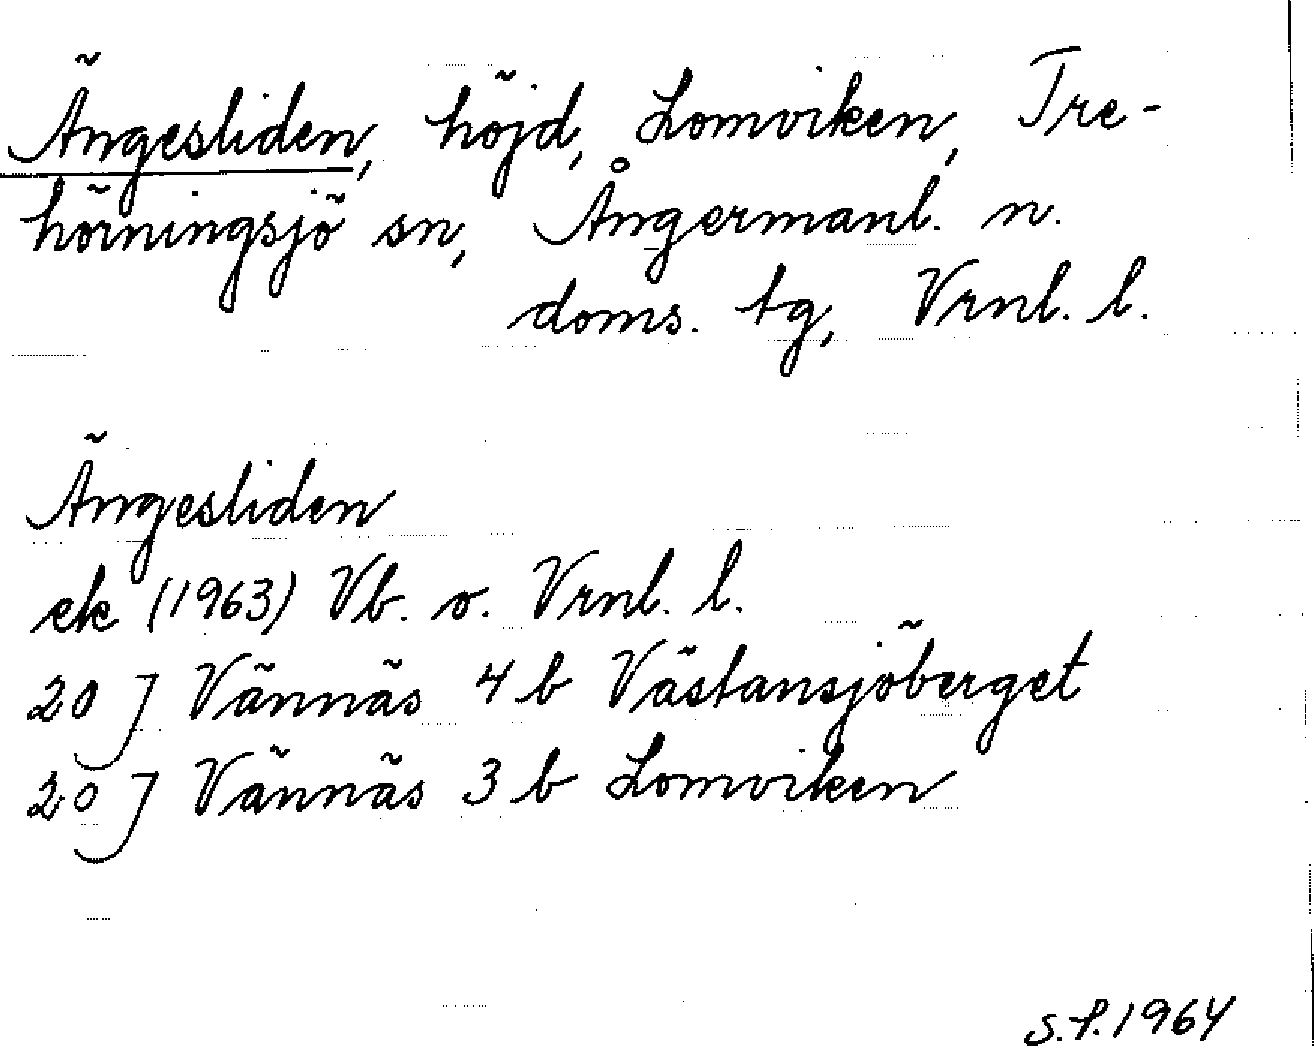 Ängesliden, höjd, Lomviken, Tre-
hörningsjö sn, Ångermanl. n.
doms. tg, Vrnl. l.
Ängesliden
ek (1963) Vb. o. Vrnl. l.
20 J Vännäs 4 b Västansjöberget
20 J Vännäs 3 b Lomviken
S.P. 1964